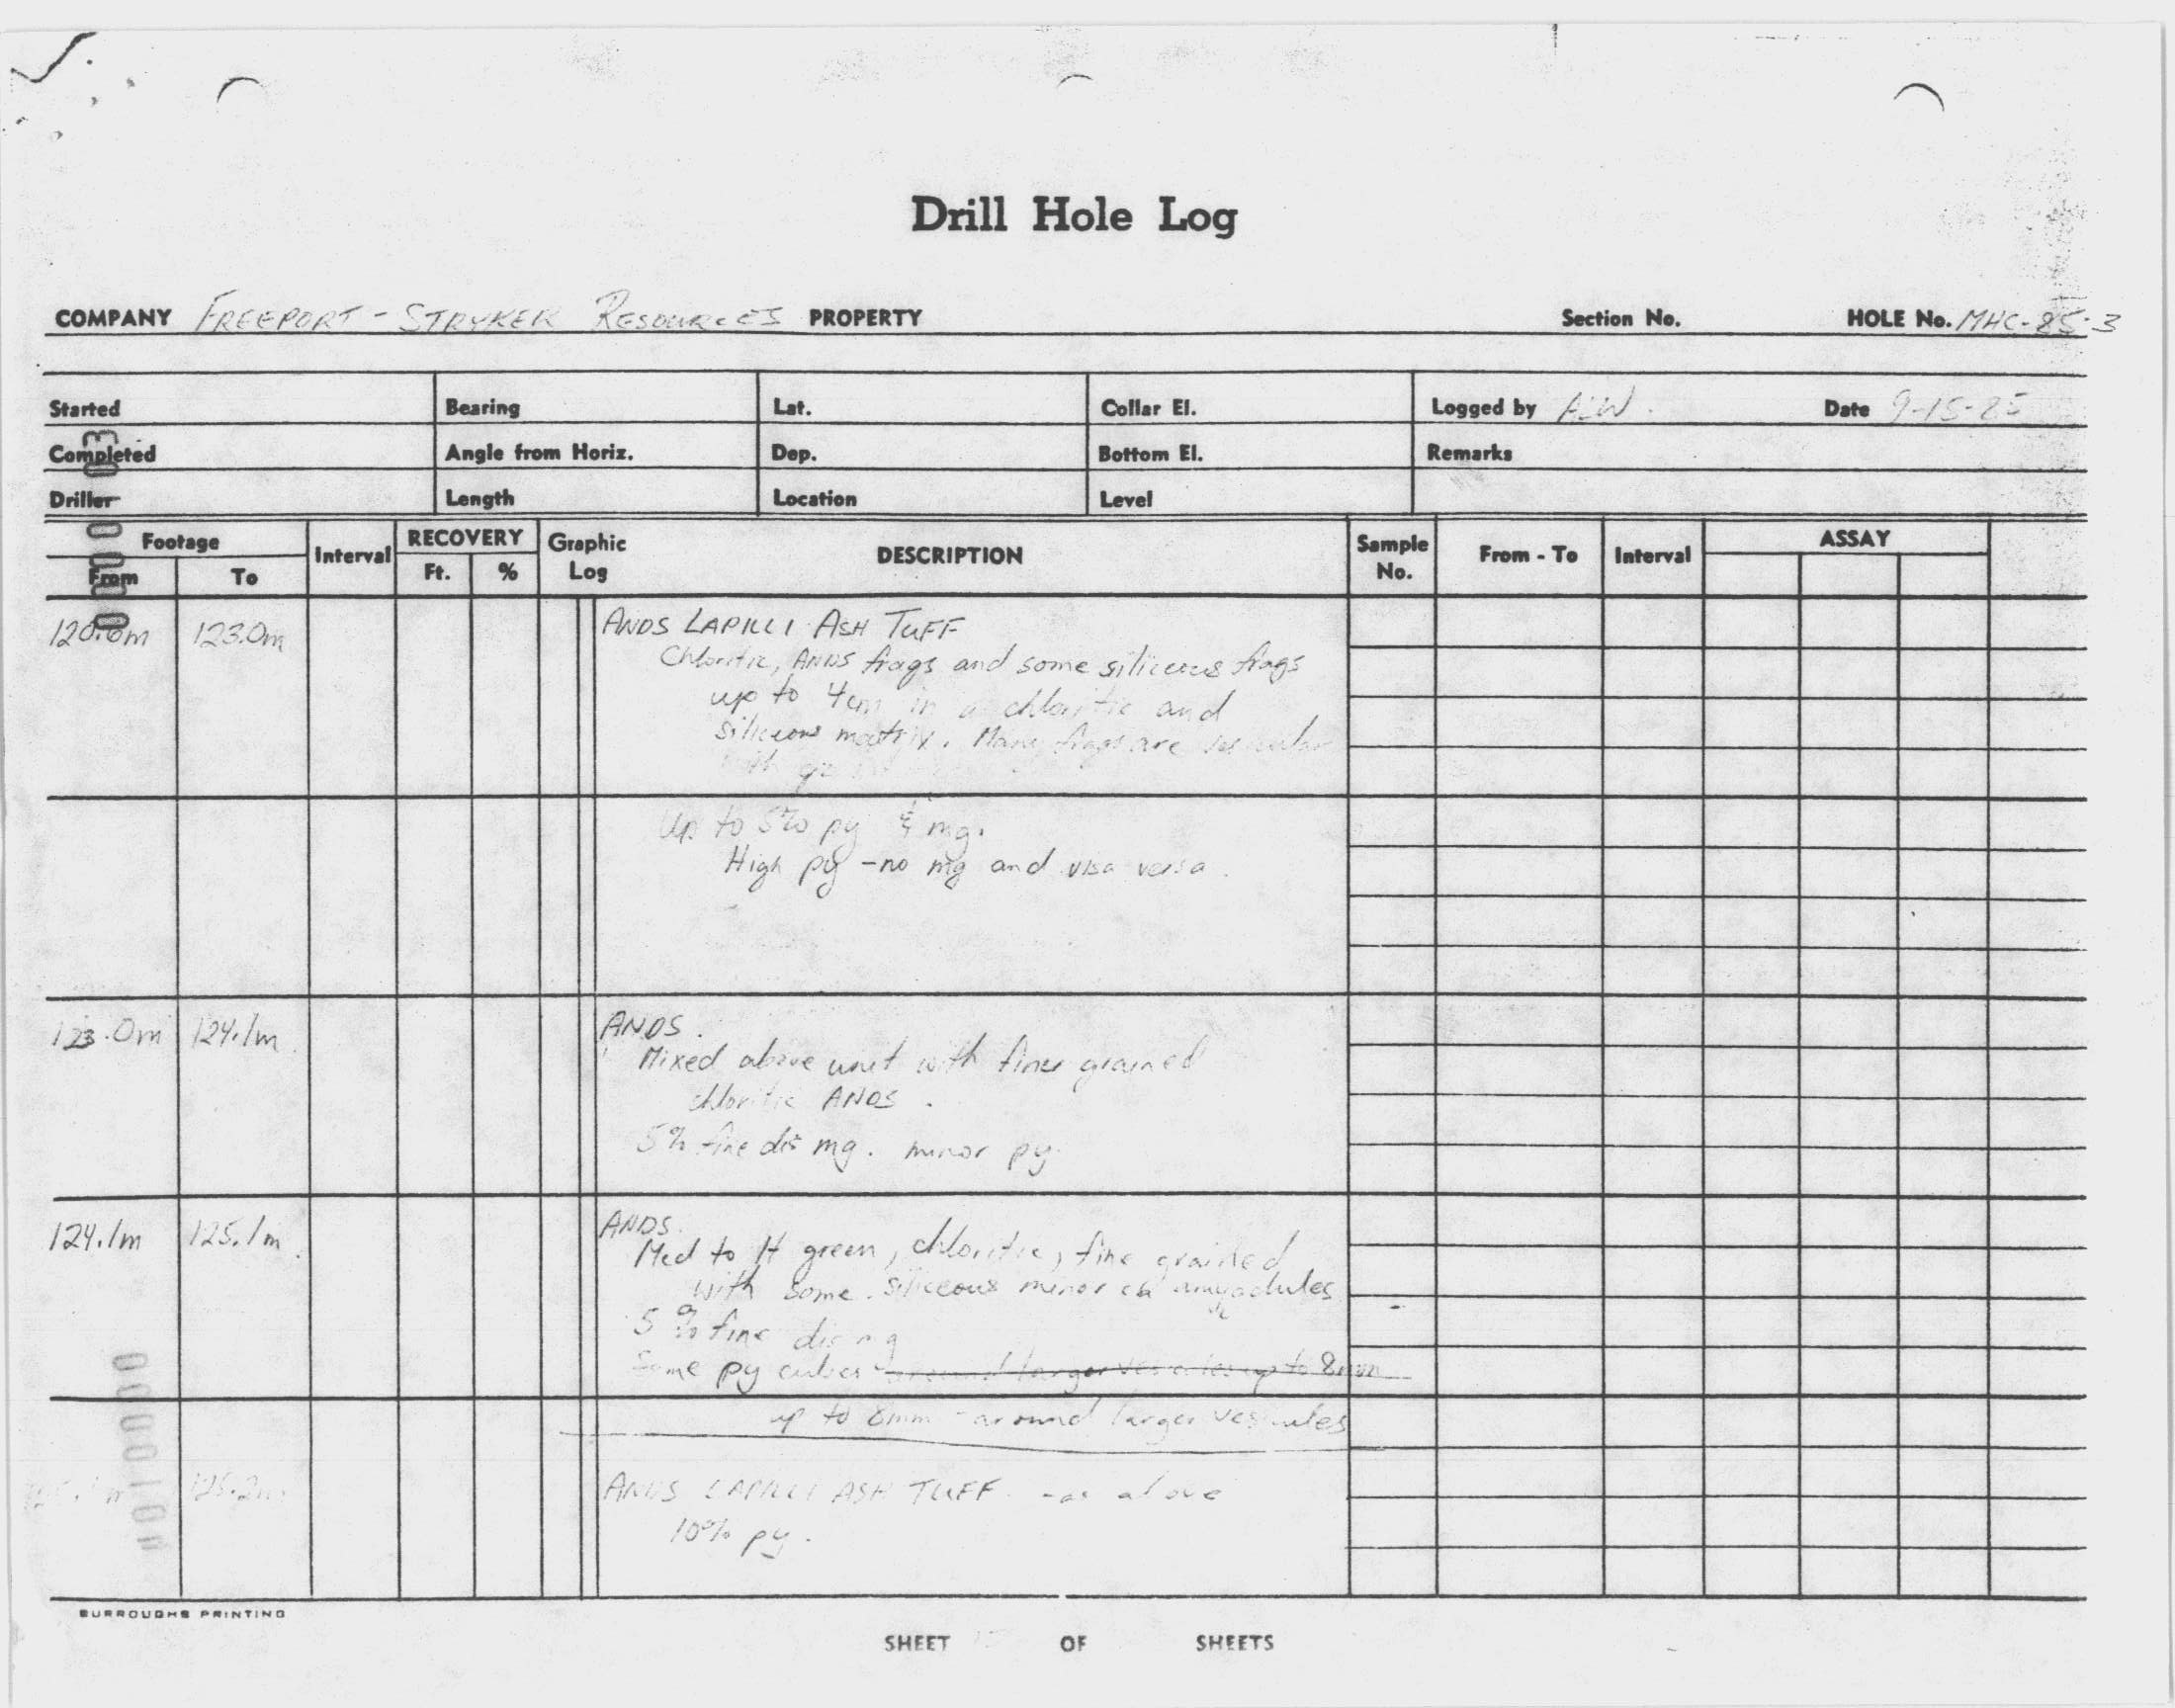 Drill Hole Log
COMPANY FREEPORT - STRYKER RESOURCES PROPERTY Section No. HOLE No. MHC-85-3
Started Bearing Lat. Collar El. Logged by Date 9-15-85
Completed Angle from Horiz. Dep. Bottom El. Remarks
Driller Length Location Level
Footage Interval RECOVERY Graphic Log DESCRIPTION Sample No. From - To Interval ASSAY
From To Ft. %
120.6m 123.0m ANDS LAPILLI ASH TUFF
Chloritic, ANDS frags and some siliceous frags
up to 4cm in a chloritic and
siliceous matrix. Many frags are vesicular
with
Up to 5% py & mg.
High py - no mg and visa versa.
123.0m 124.1m ANDS.
Mixed above unit with finer grained
chloritic ANDS.
5% fine dis mg. minor py.
124.1m 125.1m ANDS.
Med to lt green, chloritic, fine grained
with some siliceous minor cb amygdules
5% fine dis mg
Some py cubes around larger vesicules up to 8mm
up to 8mm - around larger vesicules
ANDS LAPILLI ASH TUFF - as above
10% py.
BURROUGHS PRINTING
SHEET OF SHEETS